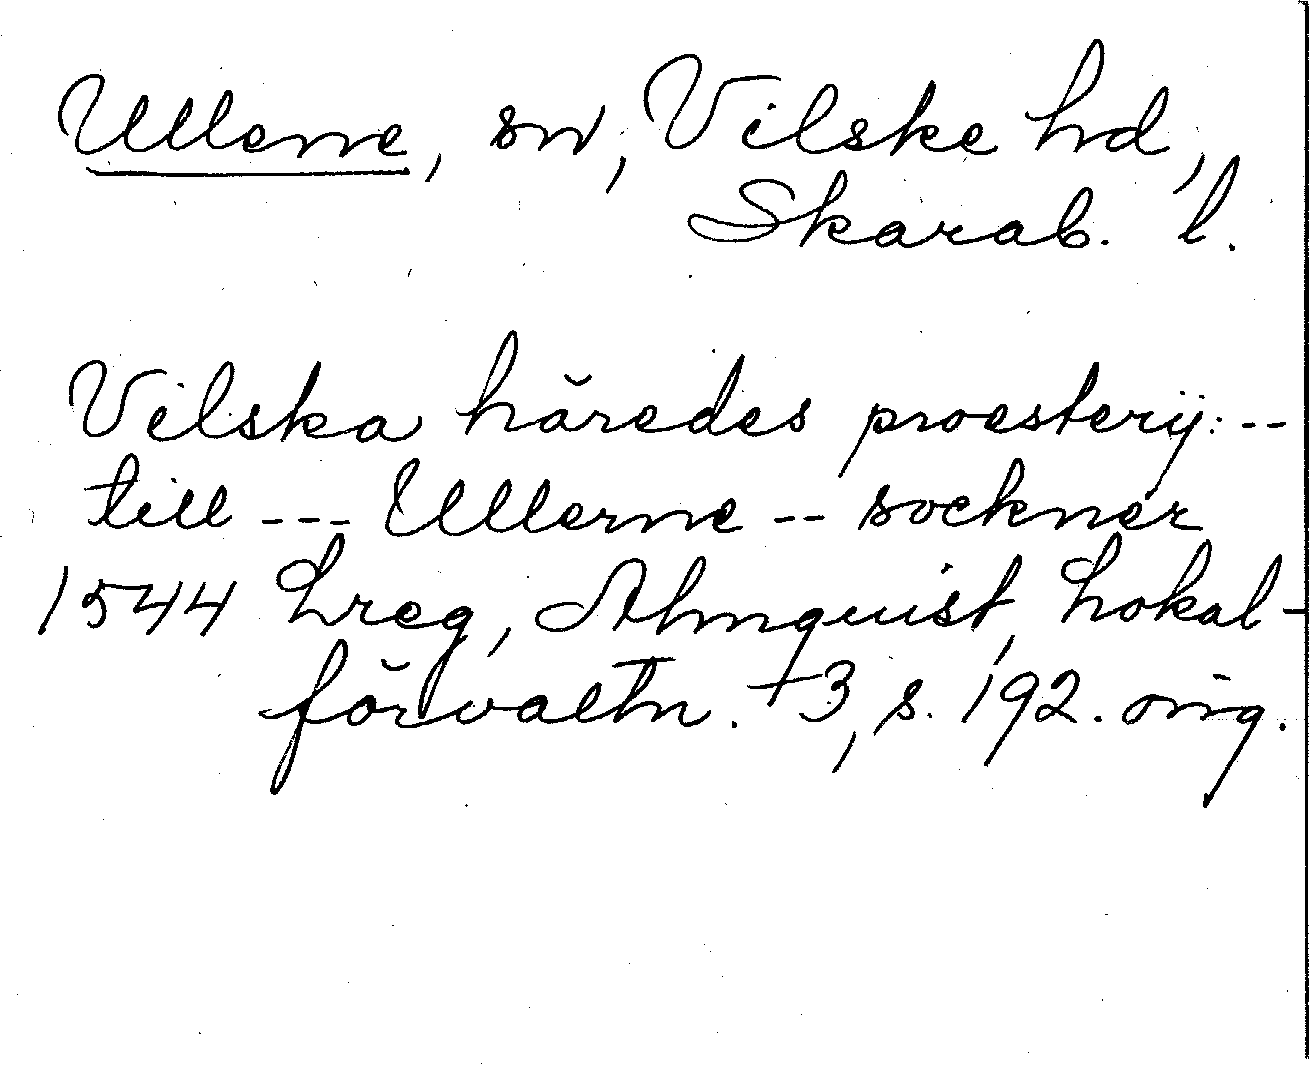 Ullene, sn, Vilske hd,
Skarab. l.
Vilska häredes proesterij: --
till --- Ullerne -- sockner
1544 Lreg, Almquist, Lokal-
förvaltn. +3, s. 192. orig.